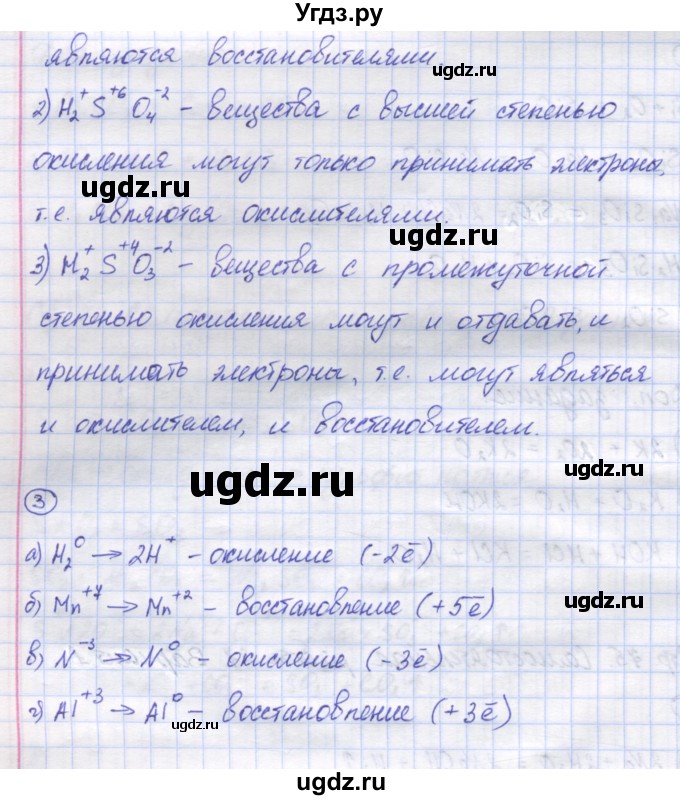 Угдз.ру
являются восстановителями.
2) H₂⁺S⁺⁶O₄⁻² – вещества с высшей степенью
окисления могут только принимать электроны,
т.е. являются окислителями.
3) H₂⁺S⁺⁴O₃⁻² – вещества с промежуточной
степенью окисления могут и отдавать, и
принимать электроны, т.е. могут являться
и окислителем, и восстановителем.
3
а) H₂⁰ → 2H⁺ – окисление (-2ē)
б) Mn⁺⁷ → Mn⁺² – восстановление (+5ē)
в) N⁻³ → N⁰ – окисление (-3ē)
г) Al⁺³ → Al⁰ – восстановление (+3ē)
ugdz.ru
ugdz.ru
ugdz.ru
ugdz.ru
ugdz.ru
ugdz.ru
ugdz.ru